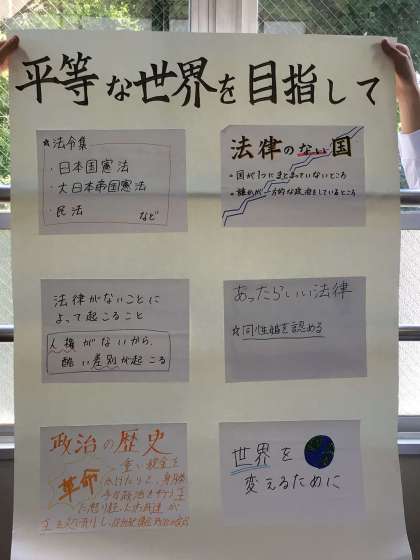 平等な世界を目指して
☆法令集
・日本国憲法
・大日本帝国憲法
・民法
など
法律のない国
・国が1つにまとまっていないところ
・誰かが一方的な政治をしているところ
法律がないことに
よって起こること
人権がないから、
酷い差別が起こる
あったらいい法律
☆同性婚を認める
政治の歴史
革命
重い税金を
かけたりと、身勝
手な政治を行う王
に怒り狂った民達が
世界を
変えるために